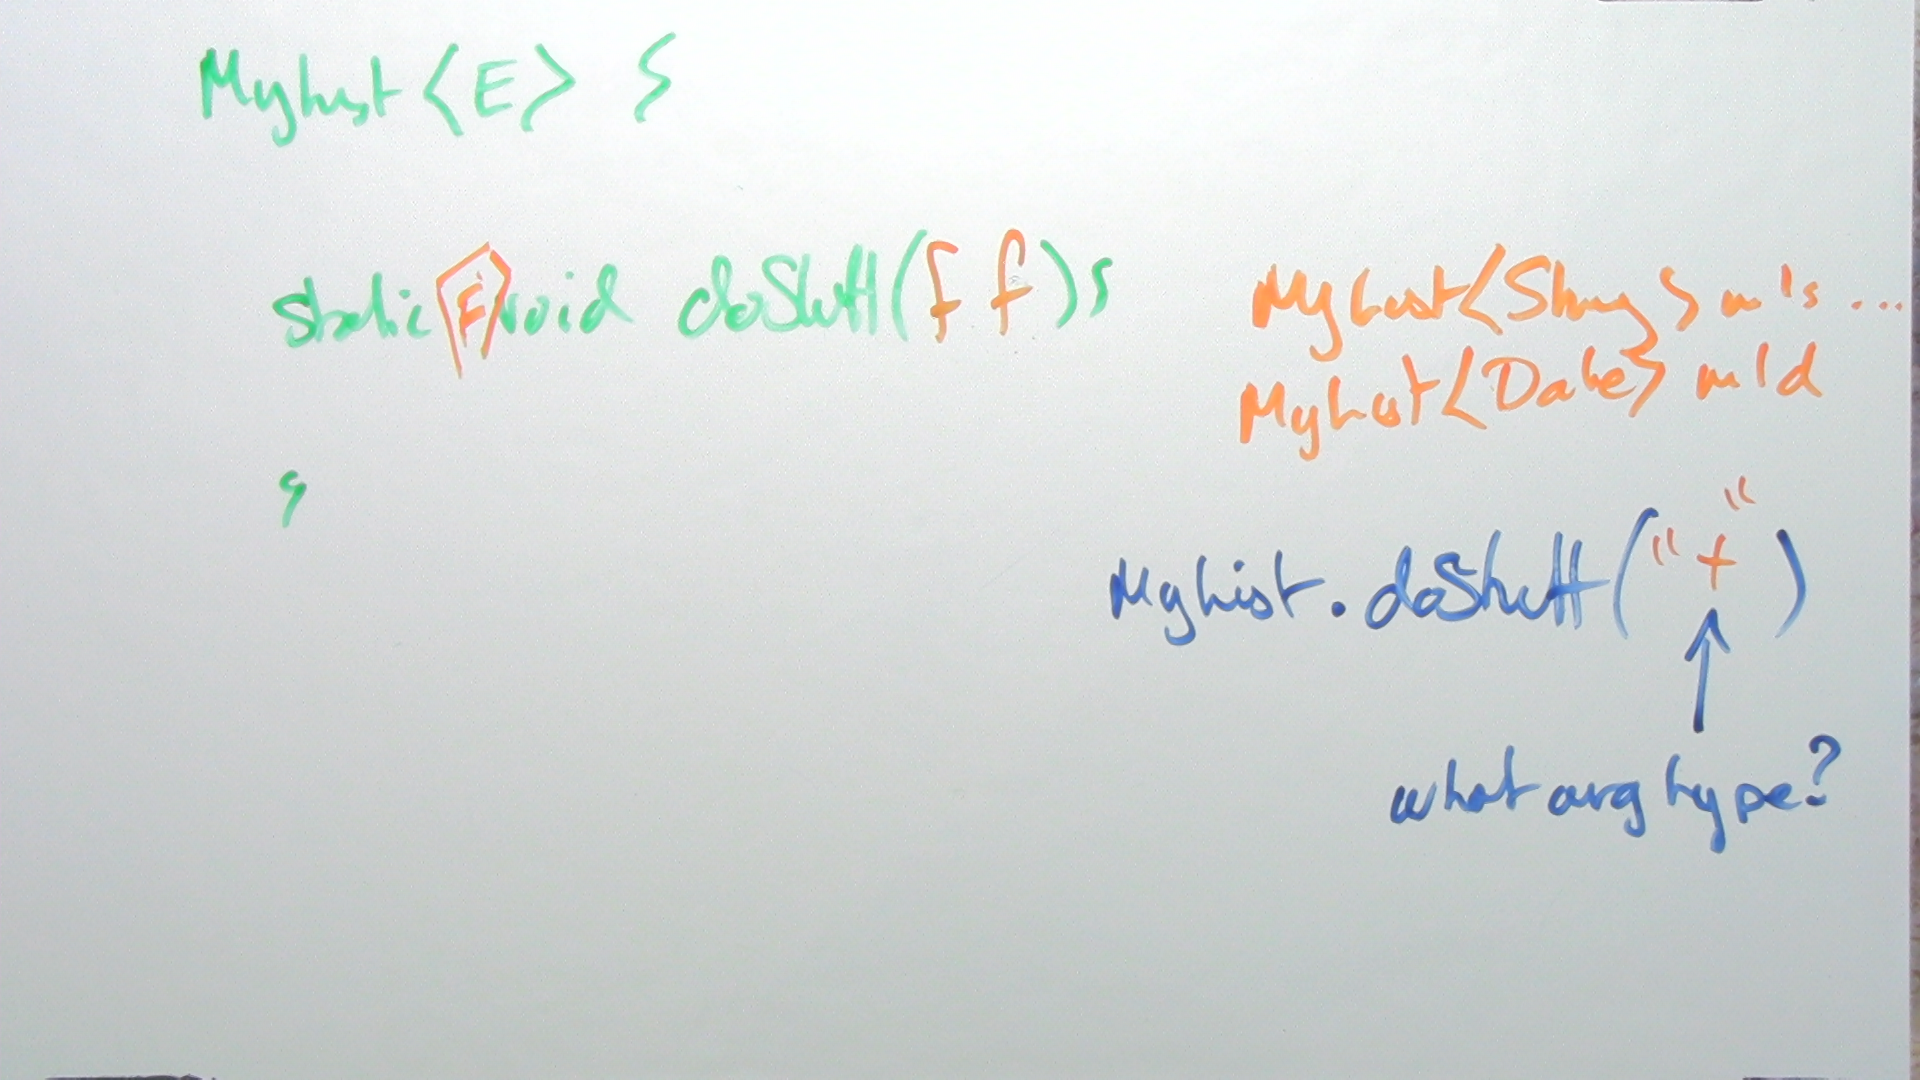 MyList <E> {
static <F> void doStuff(F f) {
}
MyList<String> mls ...
MyList<Date> mld
MyList.doStuff("+")
what arg type?